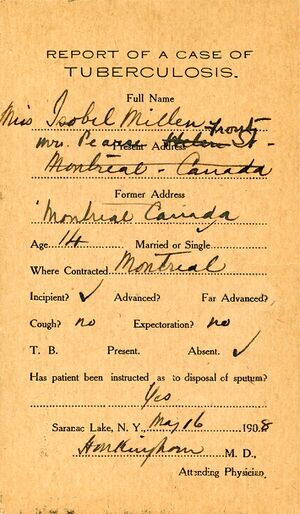 REPORT OF A CASE OF
TUBERCULOSIS.
Full Name
Miss Isobel Millen
Mrs. Pearse Helen Front St -
Present Address
Montreal - Canada
Former Address
Montreal Canada
Age 14 Married or Single
Where Contracted Montreal
Incipient? ✓ Advanced? Far Advanced?
Cough? no Expectoration? no
T. B. Present. Absent. ✓
Has patient been instructed as to disposal of sputum?
Yes
Saranac Lake, N. Y., May 16 1908
M. D.,
Attending Physician.